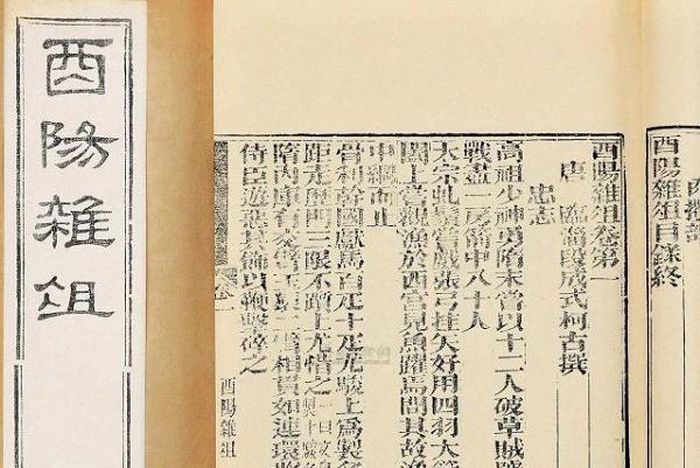 酉陽雜俎
酉陽雜俎目錄終
酉陽雜俎卷第一
唐 臨淄段成式柯古撰
忠志
高祖少神勇隋末嘗以十二人破草賊
戰盡一房箭中八十人
太宗虬鬚嘗戲張弓挂矢好用四羽大
闊上嘗觀漁於西宮見魚躍焉問其故漁
中網而止
骨利幹國獻馬百疋十疋尤駿上為製
距走歷門三限不躓上尤惜之
隋內庫有交臂玉猿二臂相貫如連環
侍臣遊惡其飾以鞭擊碎之
卷一
酉陽雜俎